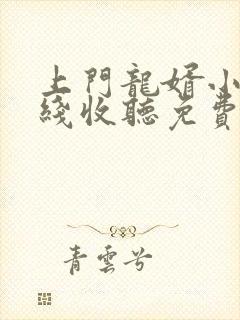 上門龍婿小
綫收聽免費
青雲兮